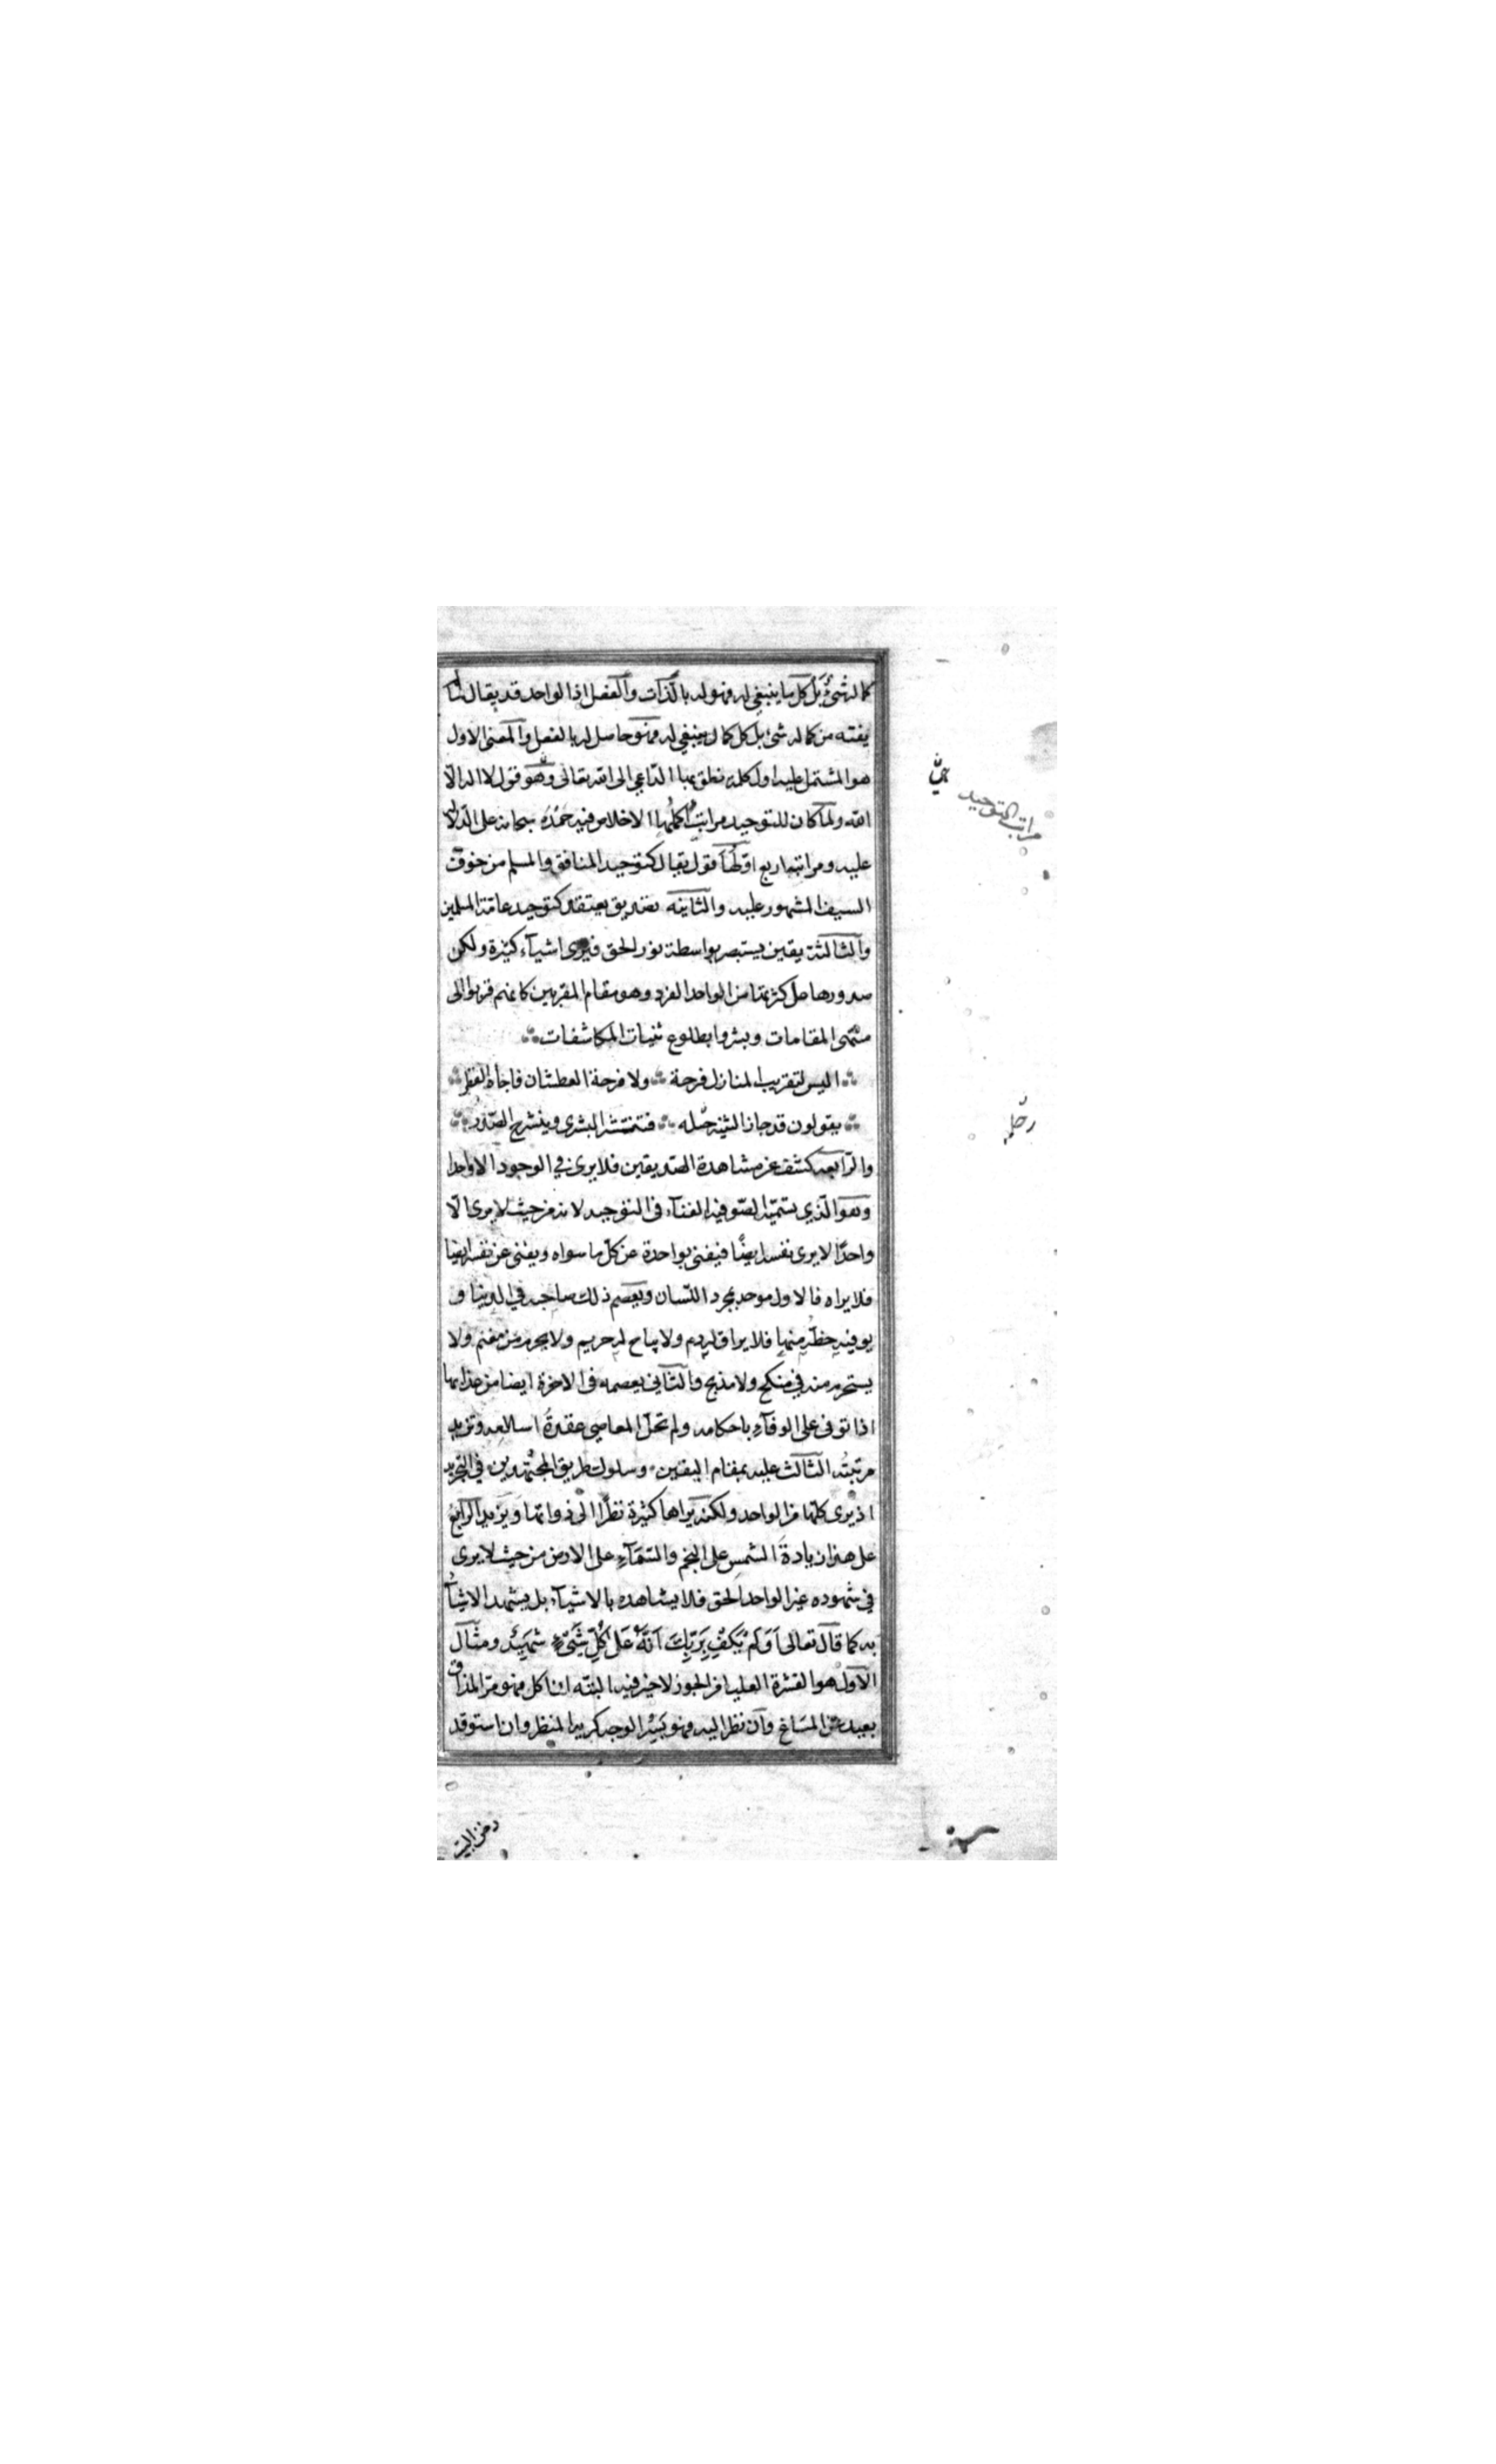 كماله شئ بل كل ما ينبغي له فهو له بالذات والفعل اذ الواحد قد يقال لما
يفته من كماله شئ بل كل كمال ينبغي له فهو حاصل له بالفعل والمعنى الاول
هو المشتمل عليه اول كلمة نطق بها الداعي الى الله تعالى وهو قول لا اله الّا
الله ولما كان للتوحيد مراتب اكملُها الاخلاص فيه حَمْدُه سبحانه على الدلالة
عليه ومراتبه اربع اوّلُها قول يقال كتوحيد المنافق والمسلم من خوف
السيف المشهور عليه والثانية تصديق يعتقد كتوحيد عامّة المسلمين
والثالثة يقين يستبصر بواسطة نور الحق فيرى اشيآء كثيرة ولكن
صدورها على كثرتها من الواحد الفرد وهو مقام المقربين كانهم قربوا الى
منتهى المقامات وبشروا بطلوع ثنيات المكاشفات
اليس لتقريب المنازل فرحة ولا فرحة العطشان فاجأه القطر
يقولون قد جاز الثنية حمله فتنتشر البشرى وينشرح الصدر
والرابعة كشف عن مشاهدة الصديقين فلا يرى في الوجود الا واحدا
وهو الّذي يسمّيه الصّوفية الفنآء في التوحيد لانه من حيث لا يرى الّا
واحدًا لا يرى نفسه ايضًا فيفنى بواحدة عن كل ما سواه ويفنى عن نفسه ايضا
فلا يراه فالاول موحد بمجرد اللّسان ويعصم ذلك صاحبه في الدنيا و
يوفيه حظّه منها فلا يراق له دم ولا يباح له حريم ولا يحرم من مغنم ولا
يستحرم منه في منكح ولا مذبح والثاني يعصمه في الاخرة ايضا من عذابها
اذا توفى على الوفآءِ باحكامه ولم تحلّ المعاصي عقدةُ اسالعه وتزيد
مرتبتُه الثالث عليه بمقام اليقين وسلوك طريق المجتهدين في التجريد
اذ يرى كلّها من الواحد ولكنه يراها كثيرة نظرًا الى ذواتها ويزيد الرابع
على هذا زيادةَ الشمسِ على النجم والسّمآءِ على الارض من حيث لا يرى
في شهوده غير الواحد الحق فلا يشاهده بالاشيآء بل يشهد الاشيآء
به كما قال تعالى اَوَلَمْ يَكْفِ بِرَبِّكَ اَنَّهُ عَلى كُلِّ شَيْءٍ شَهِيدٌ ومثال
الاول هو القشرة العليا من الجوز لا خير فيه البتة ان اكل فهو مرّ المذاق
بعيد عن المسَاغ وان نظر اليه فهو بَسْرُ الوجه كريه المنظر وان استوقد
مراتب التوحيد
رحله